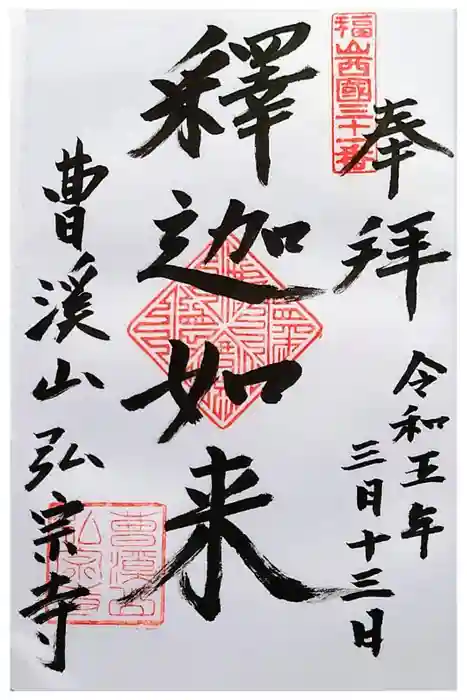 福山西國三十一番
奉拝
令和五年
三月十三日
釋迦如来
曹溪山弘宗寺
曹溪山
弘宗寺